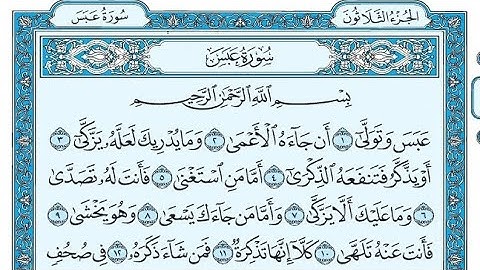 الجُزْءُ الثَّلَاثُونَ سُورَةُ عَبَسَ
سُورَةُ عَبَسَ
بِسْمِ اللَّهِ الرَّحْمَٰنِ الرَّحِيمِ
عَبَسَ وَتَوَلَّىٰٓ ١ أَن جَآءَهُ ٱلْأَعْمَىٰ ٢ وَمَا يُدْرِيكَ لَعَلَّهُۥ يَزَّكَّىٰٓ ٣
أَوْ يَذَّكَّرُ فَتَنفَعَهُ ٱلذِّكْرَىٰٓ ٤ أَمَّا مَنِ ٱسْتَغْنَىٰ ٥ فَأَنتَ لَهُۥ تَصَدَّىٰ
٦ وَمَا عَلَيْكَ أَلَّا يَزَّكَّىٰ ٧ وَأَمَّا مَن جَآءَكَ يَسْعَىٰ ٨ وَهُوَ يَخْشَىٰ ٩
فَأَنتَ عَنْهُ تَلَهَّىٰ ١٠ كَلَّآ إِنَّهَا تَذْكِرَةٌ ١١ فَمَن شَآءَ ذَكَرَهُۥ ١٢ فِى صُحُفٍ